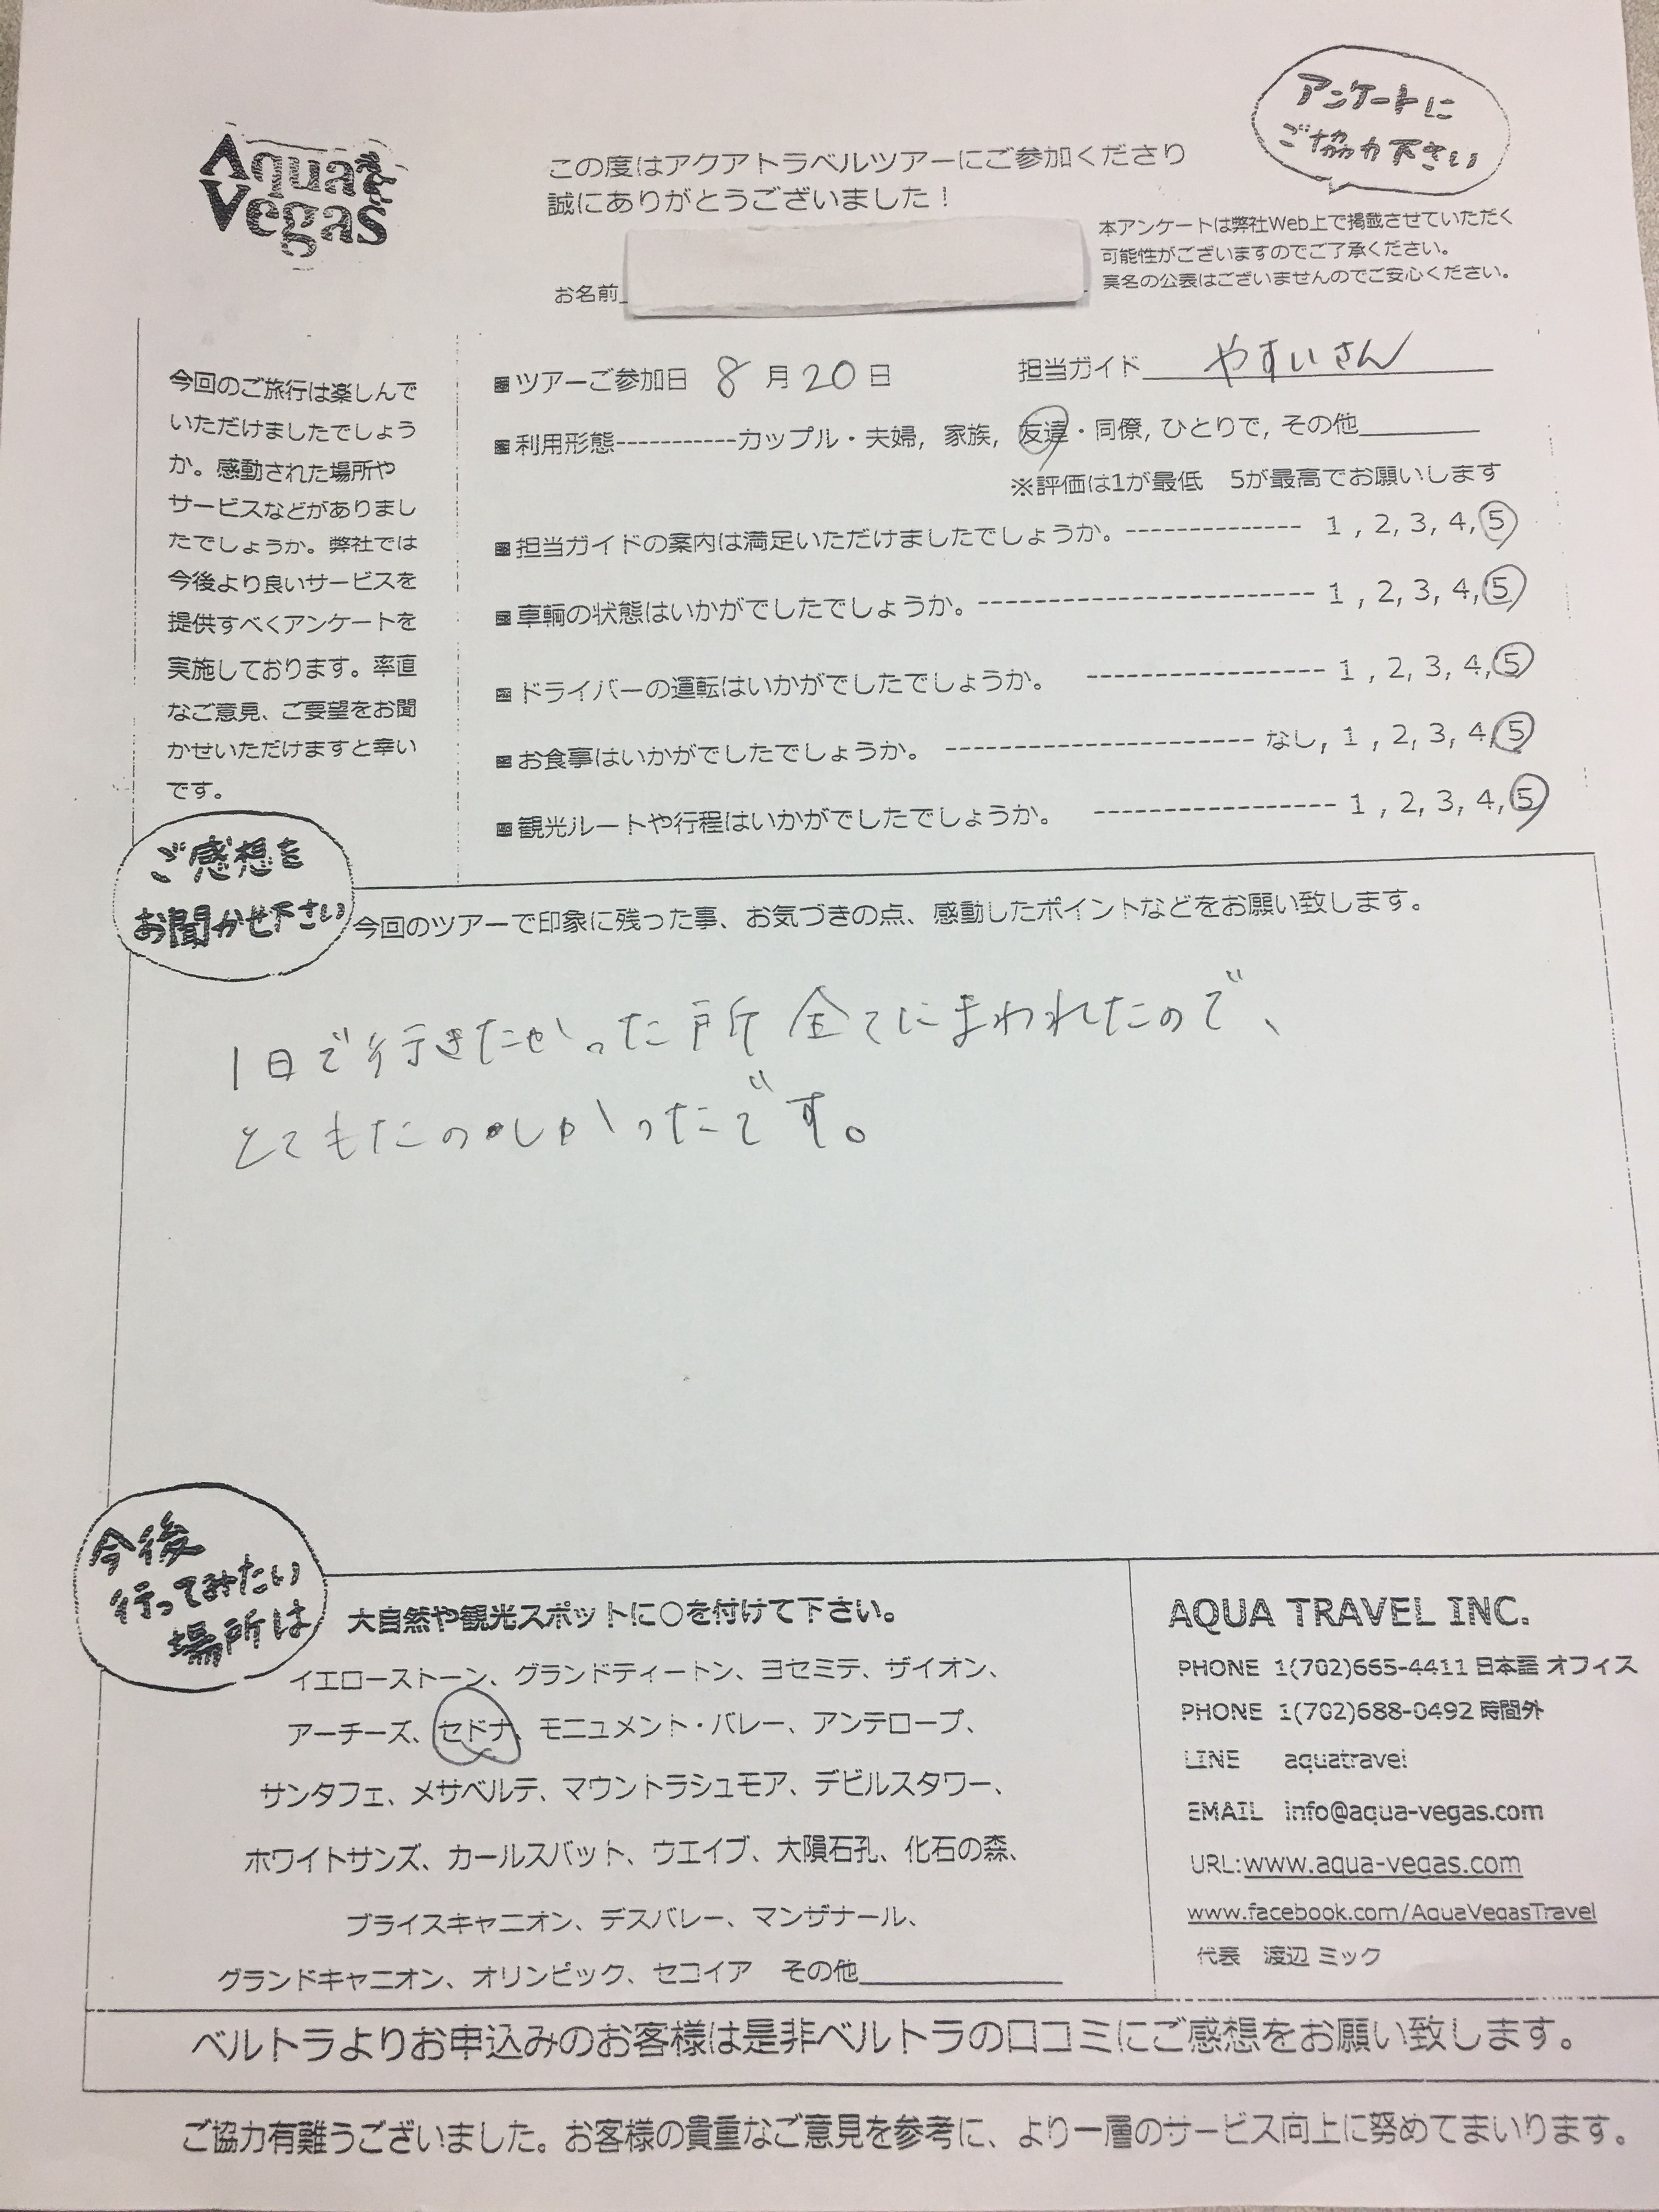 アンケートに
ご協力下さい
Aqua
Vegas
この度はアクアトラベルツアーにご参加くださり
誠にありがとうございました！
本アンケートは弊社Web上で掲載させていただく
可能性がございますのでご了承ください。
実名の公表はございませんのでご安心ください。
お名前
今回のご旅行は楽しんで
いただけましたでしょう
か。感動された場所や
サービスなどがありまし
たでしょうか。弊社では
今後より良いサービスを
提供すべくアンケートを
実施しております。率直
なご意見、ご要望をお聞
かせいただけますと幸い
です。
■ツアーご参加日 8月20日 担当ガイド やすいさん
■利用形態-----------カップル・夫婦, 家族, 友達・同僚, ひとりで, その他
※評価は1が最低　5が最高でお願いします
■担当ガイドの案内は満足いただけましたでしょうか。------------- 1 , 2, 3, 4, 5
■車輌の状態はいかがでしたでしょうか。------------------------- 1 , 2, 3, 4, 5
■ドライバーの運転はいかがでしたでしょうか。 ------------------ 1 , 2, 3, 4, 5
■お食事はいかがでしたでしょうか。 ----------------------- なし, 1 , 2, 3, 4, 5
■観光ルートや行程はいかがでしたでしょうか。 ------------------ 1 , 2, 3, 4, 5
ご感想を
お聞かせ下さい
今回のツアーで印象に残った事、お気づきの点、感動したポイントなどをお願い致します。
1日で行きたかった所全てにまわれたので、
とてもたのしかったです。
今後
行ってみたい
場所は
大自然や観光スポットに○を付けて下さい。
イエローストーン、グランドティートン、ヨセミテ、ザイオン、
アーチーズ、セドナ、モニュメント・バレー、アンテロープ、
サンタフェ、メサベルテ、マウントラシュモア、デビルスタワー、
ホワイトサンズ、カールスバット、ウエイブ、大隕石孔、化石の森、
ブライスキャニオン、デスバレー、マンザナール、
グランドキャニオン、オリンピック、セコイア　その他
AQUA TRAVEL INC.
PHONE 1(702)665-4411 日本語 オフィス
PHONE 1(702)688-0492 時間外
LINE aquatravel
EMAIL info@aqua-vegas.com
URL:www.aqua-vegas.com
www.facebook.com/AquaVegasTravel
代表　渡辺 ミック
ベルトラよりお申込みのお客様は是非ベルトラの口コミにご感想をお願い致します。
ご協力有難うございました。お客様の貴重なご意見を参考に、より一層のサービス向上に努めてまいります。